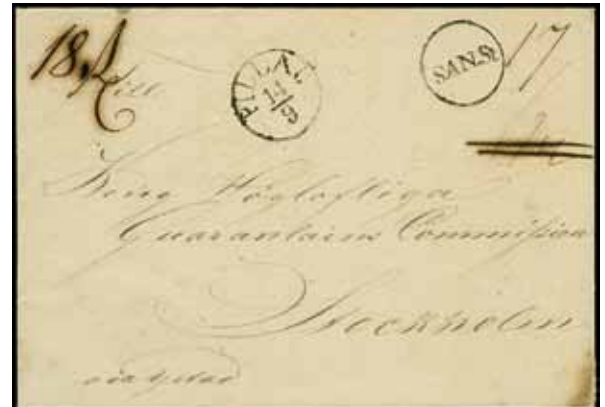 18
PILLAU
14/9
SAN.St
17
Till
Kong Höglofliga
Quarantains Commission
Stockholm
via Ystad